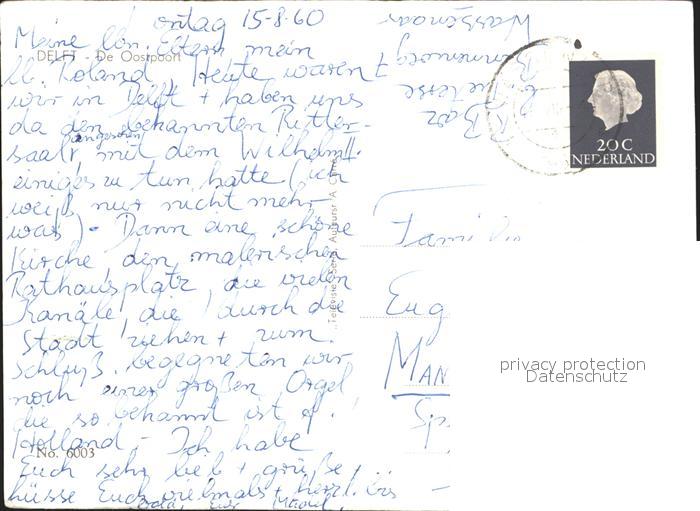 Montag 15-8-60
Meine lbn. Eltern mein
lb. Roland, Heute waren
wir in Delft + haben uns
da den bekannten Ritter-
angesehen
saal, mit dem Wilhelm II.
einiges zu tun hatte (ich
weiß nur nicht mehr
was) - Dann eine schöne
Kirche den malerischen
Rathausplatz, die vielen
Kanäle, die durch die
Stadt ziehen + zum
Schluß begegneten wir
noch einer großen Orgel
die so bekannt ist f.
Holland - Ich habe
Euch sehr lieb + grüße,
küsse Euch vielmals + herzl. bis
DELFT - De Oostpoort
No. 6003
Wassenaar
20 C
NEDERLAND
Fami
Eug
MAN
Sp
privacy protection
Datenschutz